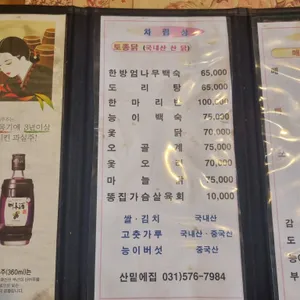 차 림 상
토종닭 (국내산 산 닭)
한방엄나무백숙 65,000
도 리 탕 65,000
한 마 리 반 100,000
능 이 백 숙 75,000
옻 닭 70,000
오 골 계 75,000
옻 오 리 70,000
마 늘 닭 75,000
똥집가슴살육회 10,000
쌀 · 김치 국내산
고춧가루 국내산 · 중국산
능이버섯 중국산
산밑에집 031)576-7984
3년이상
(360ml)는